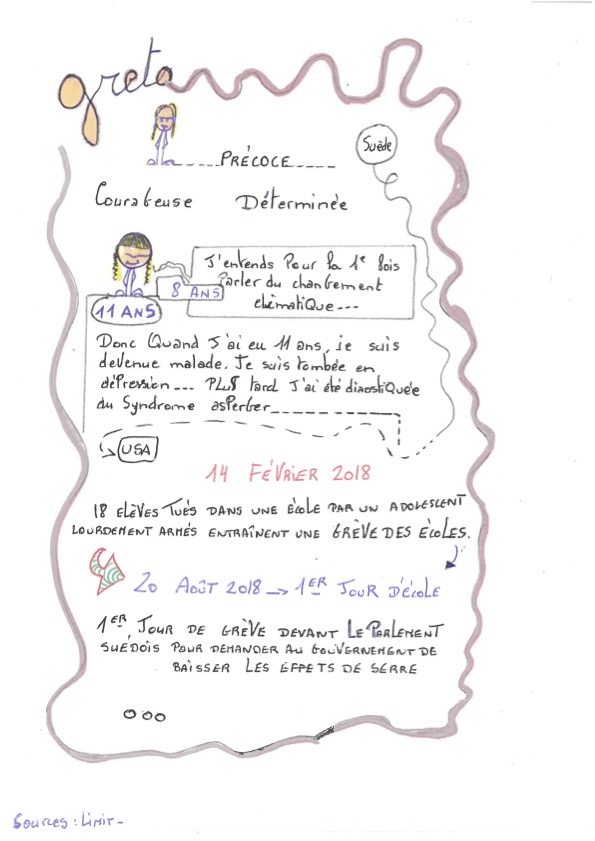 greta
Suède
PRÉCOCE
Courageuse Déterminée
J'entends Pour la 1e fois
Parler du changement
climatique---
8 ANS
11 ANS
Donc Quand J'ai eu 11 ans, je suis
devenue malade. Je suis tombée en
dépression--- PLUS tard J'ai été diagostiquée
du Syndrome asperger
USA
14 FÉVRIER 2018
18 ELÈVES TUÉS DANS UNE ÉCOLE PAR UN ADOLESCENT
LOURDEMENT ARMÉS ENTRAÎNENT UNE GRÈVE DES ÉCOLES.
20 AOÛT 2018 → 1ER JOUR D'ÉCOLE
1ER JOUR DE GRÈVE DEVANT LE PARLEMENT
SUÉDOIS POUR DEMANDER AU GOUVERNEMENT DE
BAISSER LES EFFETS DE SERRE
Sources : Limit-